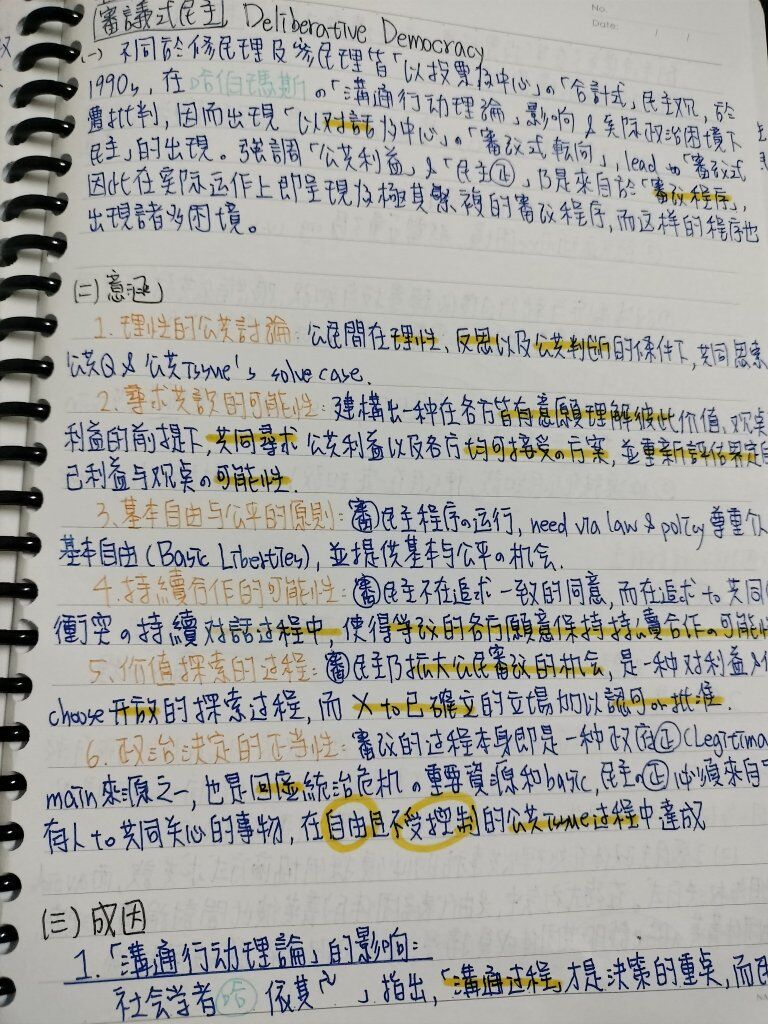 No.
Date: / /
審議式民主 Deliberative Democracy
(一) 不同於修民理及參民理皆「以投票為中心」の「合計式」民主观, 於
1990s, 在哈伯瑪斯の「溝通行动理論」影响 & 实际政治困境下
遭批判, 因而出現「以对話為中心」の「審议式轉向」, lead to「審议式
民主」的出現。強調「公共利益」&「民主㊣」乃是來自於「審议程序」,
因此在实际运作上即呈現為極其繁複的審议程序, 而这样的程序也
出現諸多困境。
(二) 意涵
1. 理性的公共討論: 公民間在理性、反思以及公共判断的條件下, 共同思索
公共Q & 公共Issue's solve case.
2. 尋求共識的可能性: 建構出一种在各方皆有意願理解彼此价值、观桌
利益的前提下, 共同尋求公共利益以及各方均可接受の方案, 並重新評估界定自
己利益与观点の可能性.
3. 基本自由与公平的原則: 審民主程序の运行, need via law & policy 尊重个
基本自由 (Basic Liberties), 並提供基本与公平の机会.
4. 持續合作的可能性: 審民主不在追求一致的同意, 而在追求 to 共同
衝突の持續对話过程中, 使得爭议的各方願意保持持續合作の可能性
5. 价值探索的过程: 審民主乃拡大公民審议的机会, 是一种对利益&
choose 开放的探索过程, 而 X to 已確立的立場加以認可 or 批准.
6. 政治決定的正当性: 審议的过程本身即是一种政府㊣(Legitima
main 來源之一, 也是回应統治危机の重要資源和basic, 民主の㊣必須來自
有人 to 共同关心的事物, 在自由且不受控制的公共Issue过程中達成
(三) 成因
1.「溝通行动理論」的影响:
社会学者哈依其~」指出,「溝通过程」才是決策的重点, 而